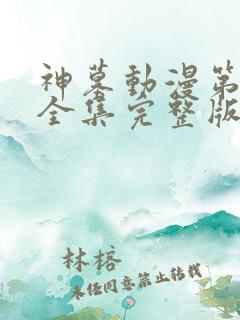 神墓動漫第
全集完整版
林榕
未任同意禁止转载